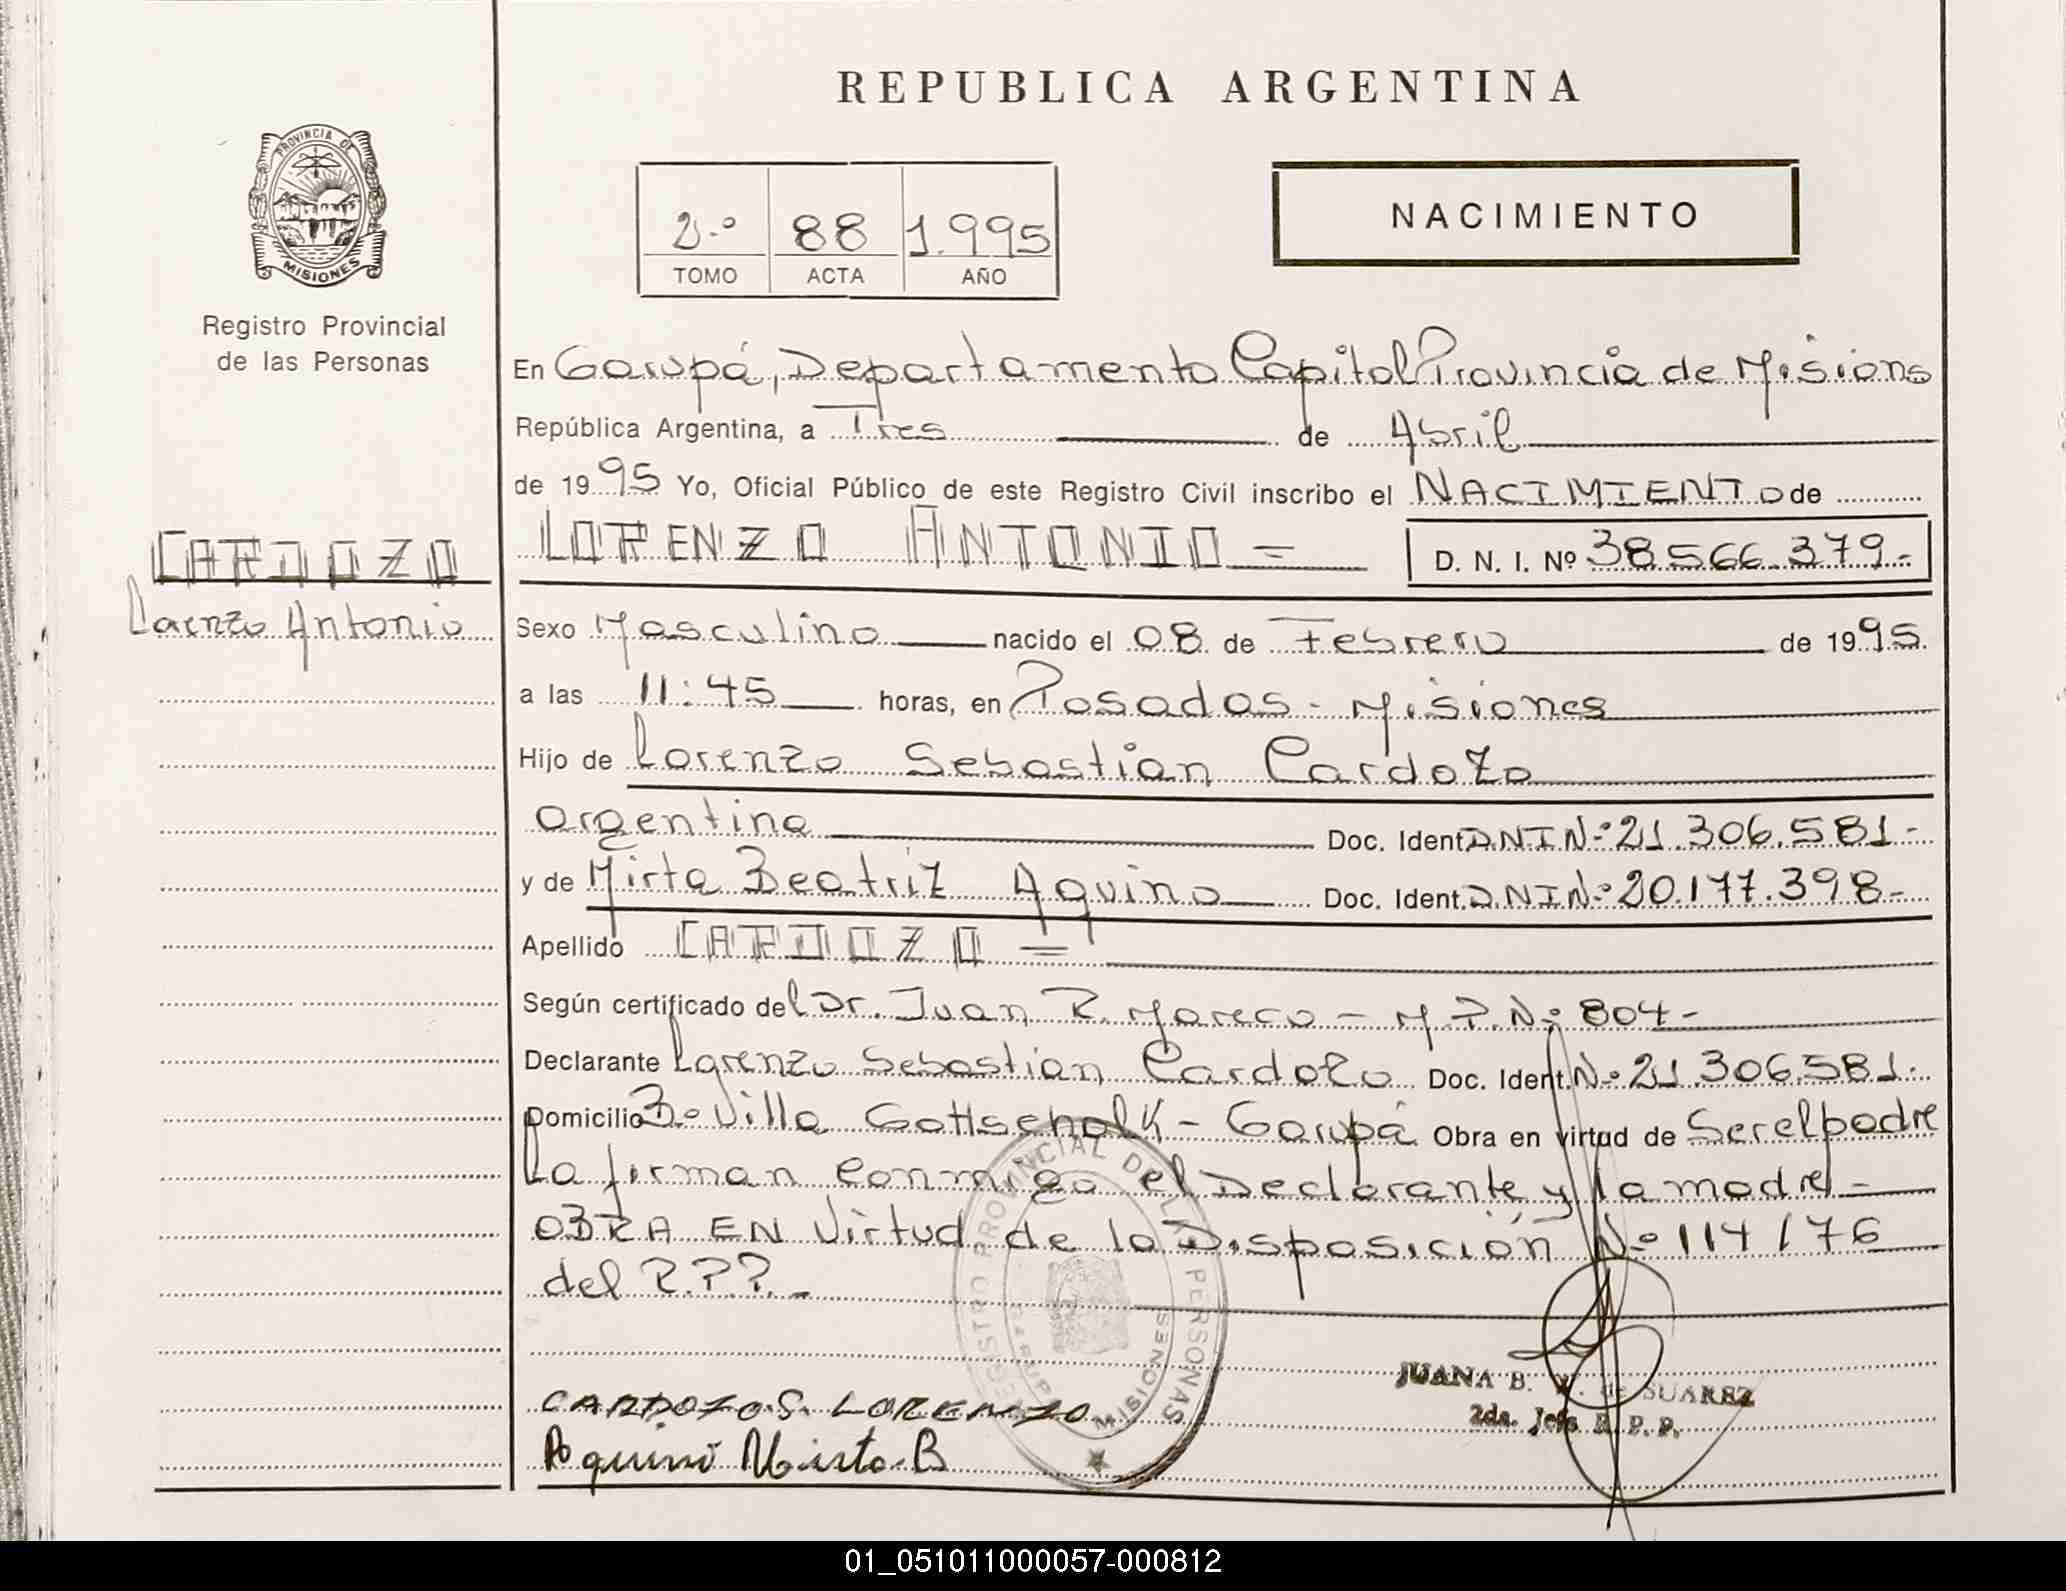 REPUBLICA ARGENTINA
PROVINCIA DE
MISIONES
Registro Provincial
de las Personas
2.º 88 1.995
TOMO ACTA AÑO
NACIMIENTO
En Garupá, Departamento Capital Provincia de Misiones
República Argentina, a Tres de Abril
de 1995 Yo, Oficial Público de este Registro Civil inscribo el NACIMIENTO de
CARDOZO
Lorenzo Antonio
LORENZO ANTONIO =
D. N. I. Nº 38.566.379.-
Sexo Masculino nacido el 08 de Febrero de 1995.
a las 11:45 horas, en Posadas - Misiones
Hijo de Lorenzo Sebastian Cardozo
argentina Doc. Ident. DNI Nº 21.306.581-
y de Mirta Beatriz Aquino Doc. Ident. DNI Nº 20.177.398-
Apellido CARDOZO =
Según certificado del Dr. Juan R. Mareco - M.P. Nº 804-
Declarante Lorenzo Sebastian Cardozo Doc. Ident. Nº 21.306.581.
Domicilio Bº Villa Gottschalk - Garupá Obra en virtud de Ser el padre
La firman conmigo el Declarante y la madre -
OBRA EN Virtud de la Disposición Nº 114/76
del R.P.P. -
REGISTRO PROVINCIAL DE LAS PERSONAS
MISIONES
JUANA B. de SUAREZ
2da. Jefe R. P. P.
CARDOZO S. LORENZO
Aquino Mirta B
01_051011000057-000812